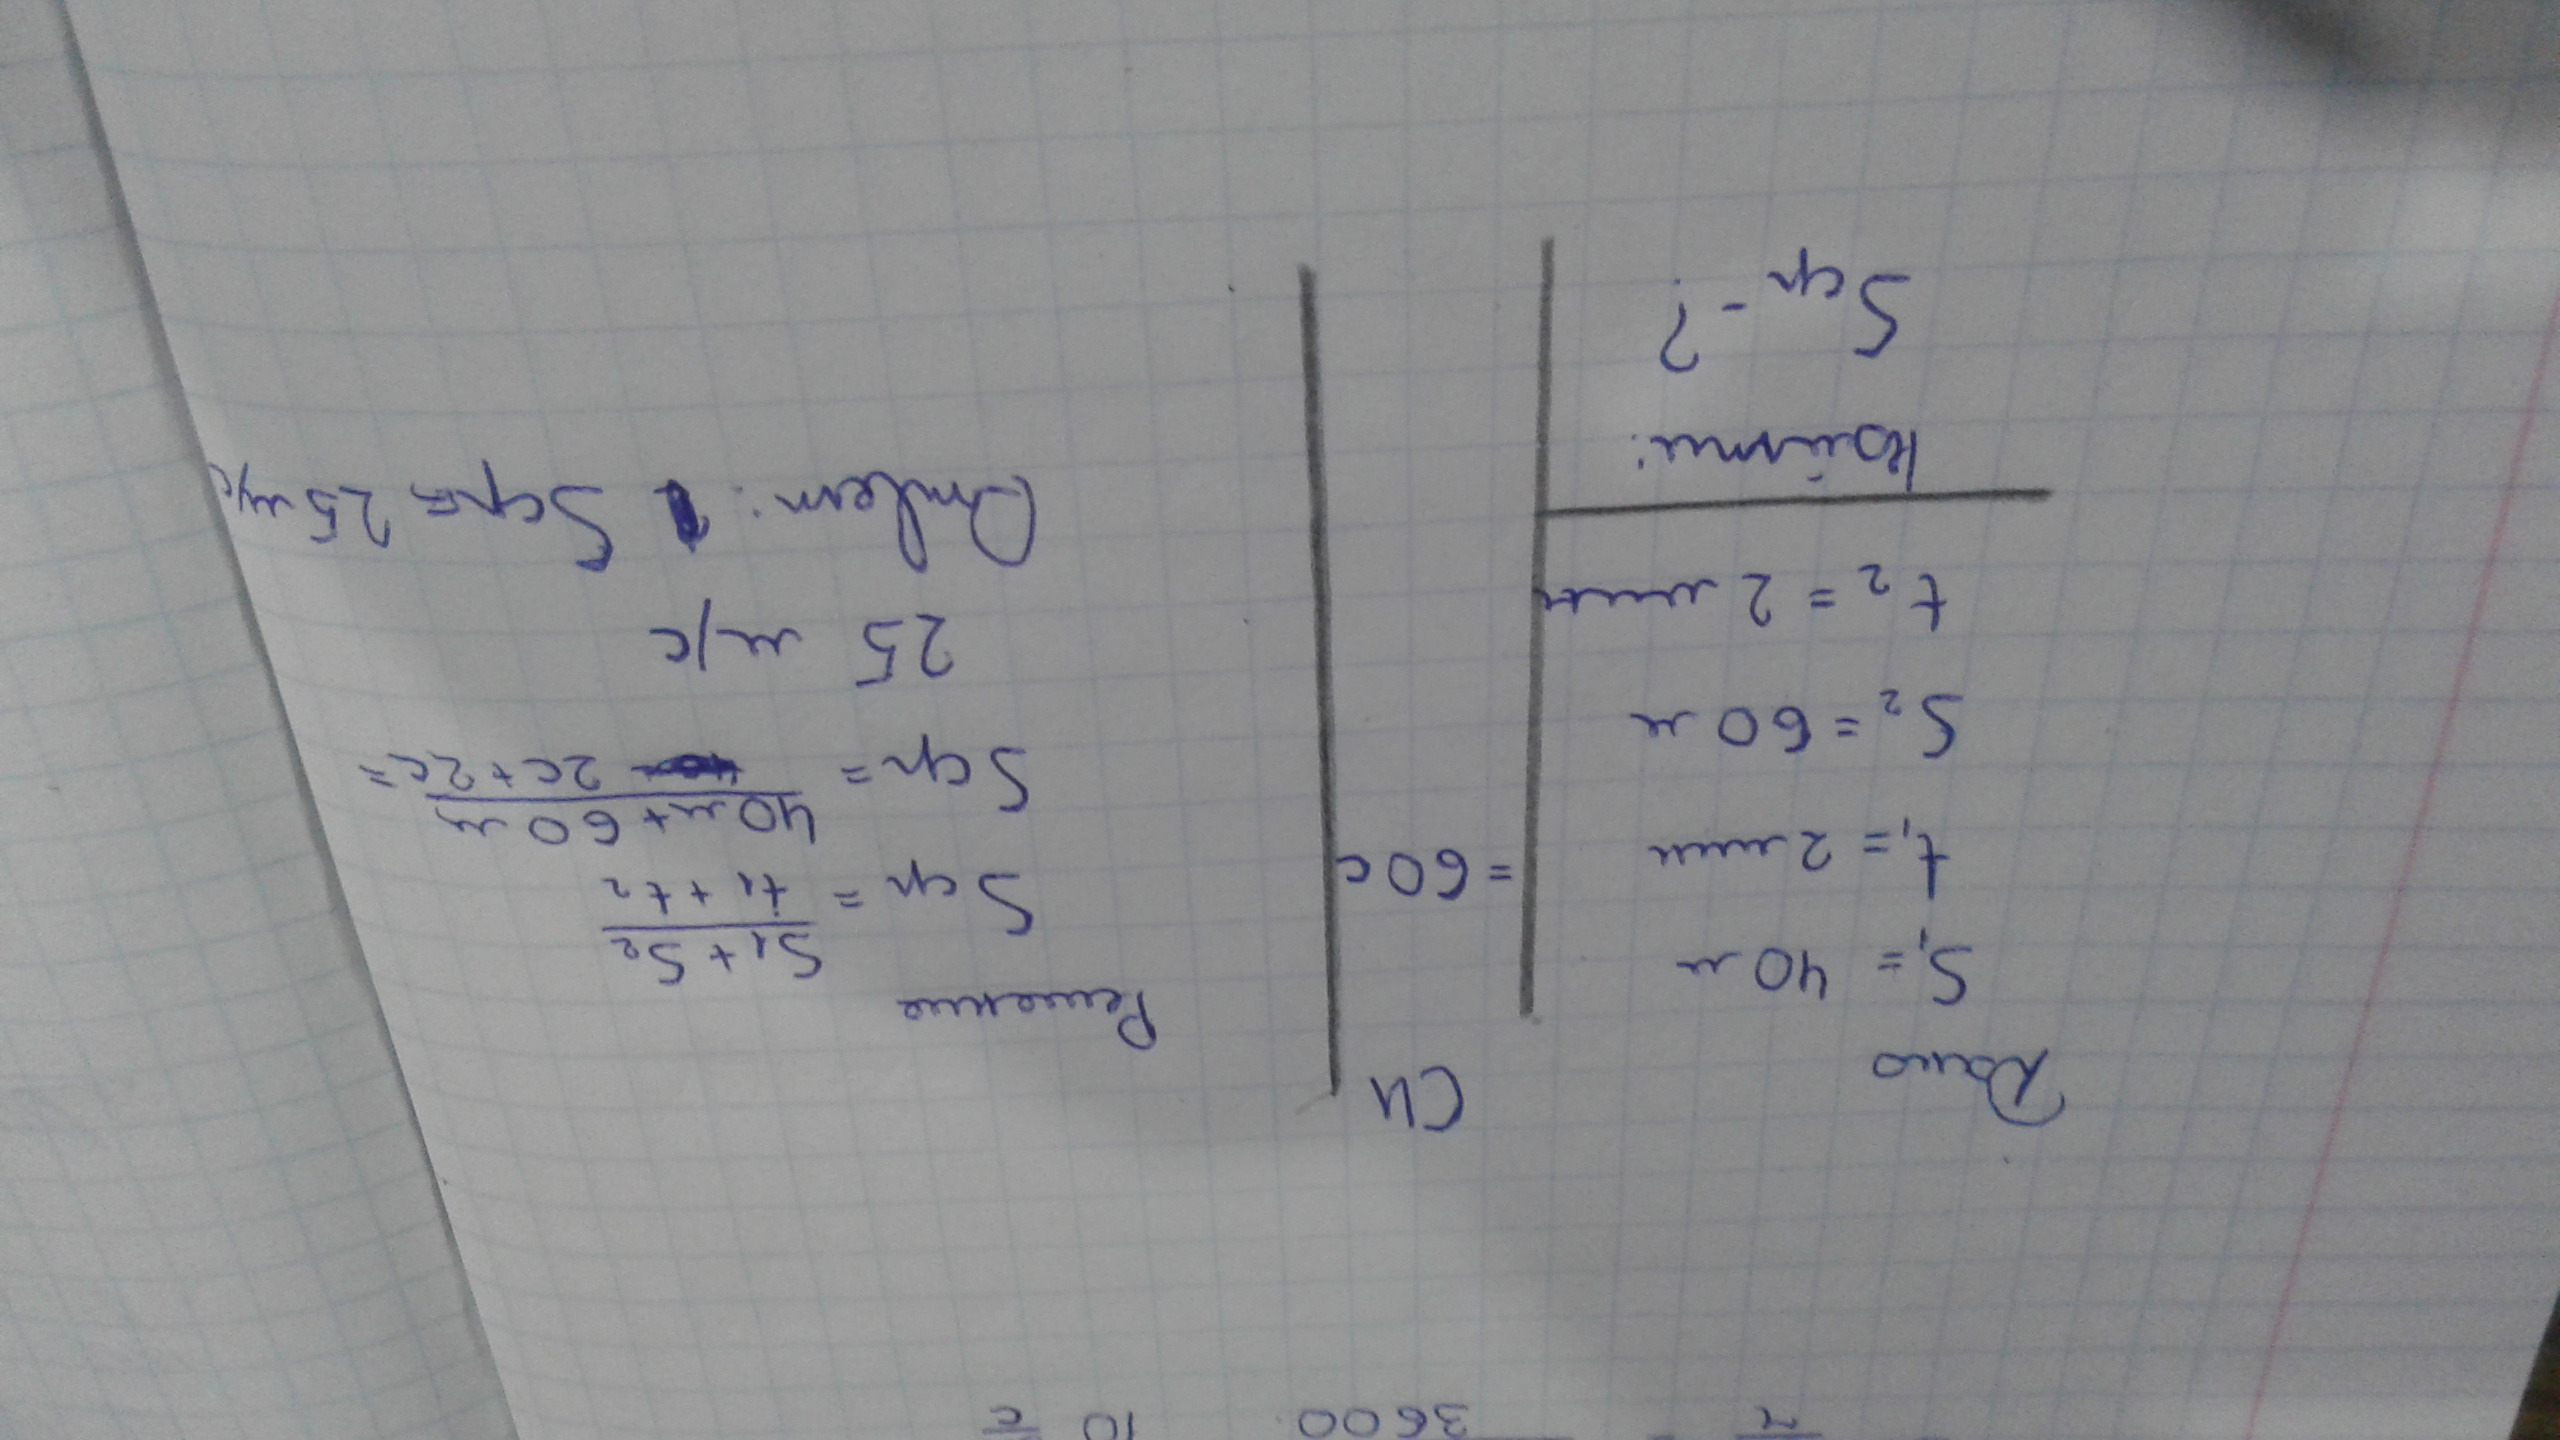 3600 10 с
Дано
S₁ = 40 м
t₁ = 2 мин
S₂ = 60 м
t₂ = 2 мин
Найти:
Sср - ?
СИ
= 60 с
Решение
Sср = S1 + S2 / t1 + t2
Sср = 40 м + 60 м / 2с + 2с =
25 м/с
Ответ: Sср = 25 м/с